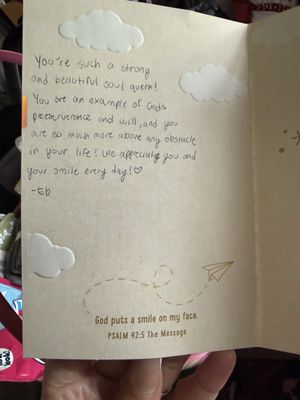 You're such a strong
and beautiful soul queen!
You are an example of Gods
perserverance and will, and you
are so much more above any obstacle
in your life! We appreciate you and
your smile every day! ♡
-Eb
God puts a smile on my face.
PSALM 42:5 The Message